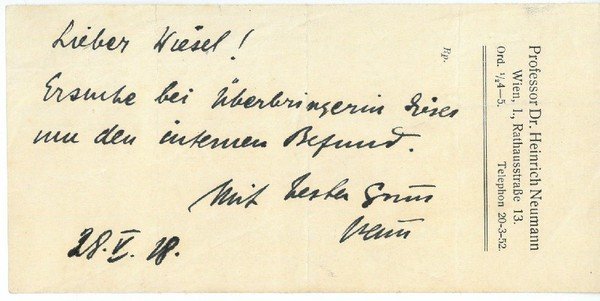 Professor Dr. Heinrich Neumann
Wien, I., Rathausstraße 13.
Ord. ¼4—5.
Telephon 20-3-52.
Rp.
Lieber Wiesel!
Ersuche bei Überbringerin dieses
um den internen Befund.
Mit besten Gruss
28. V. 18.